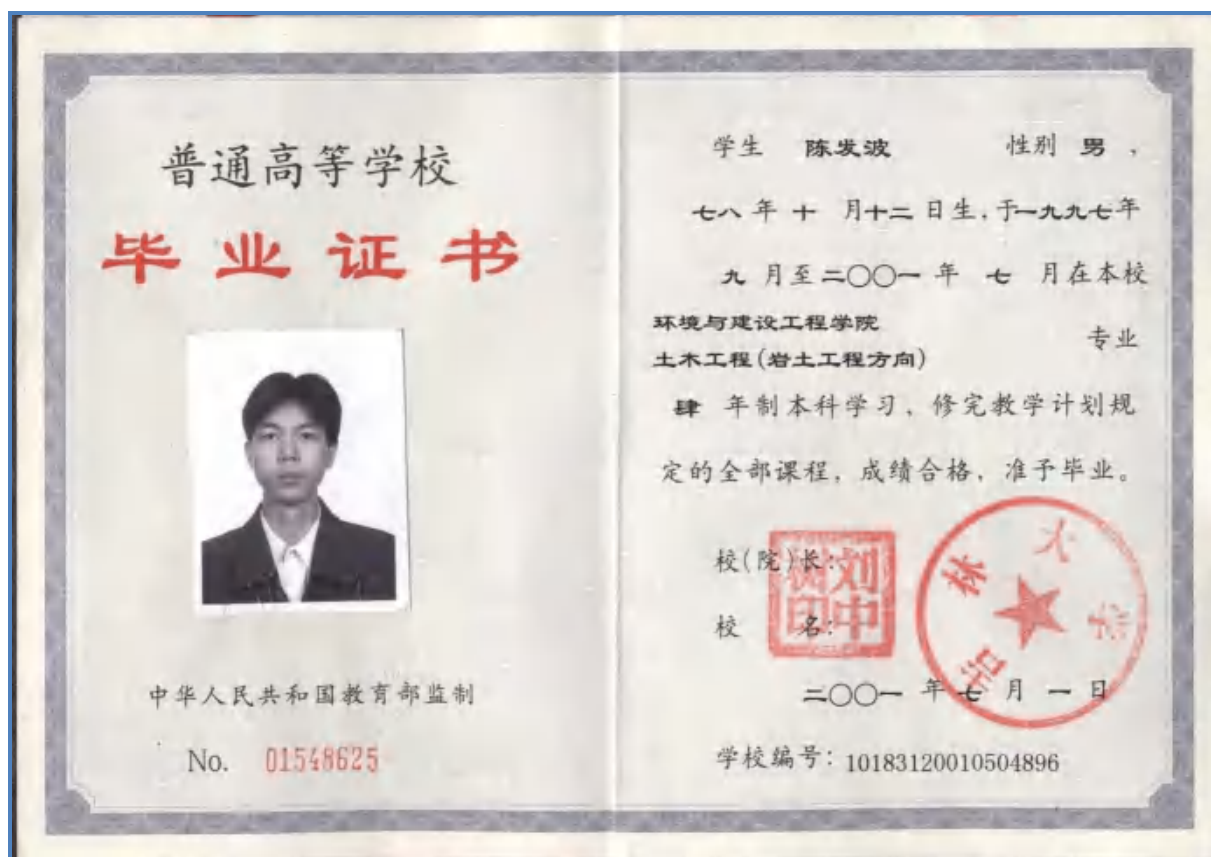 普通高等学校
毕业证书
中华人民共和国教育部监制
No. 01548625
学生 陈发波 性别 男,
七八年十月十二日生,于一九九七年
九月至二〇〇一年七月在本校
环境与建设工程学院
土木工程(岩土工程方向)
专业
肆年制本科学习,修完教学计划规
定的全部课程,成绩合格,准予毕业。
校(院)长:
刘中树印
校名:
吉林大学
二〇〇一年七月一日
学校编号:10183120010504896